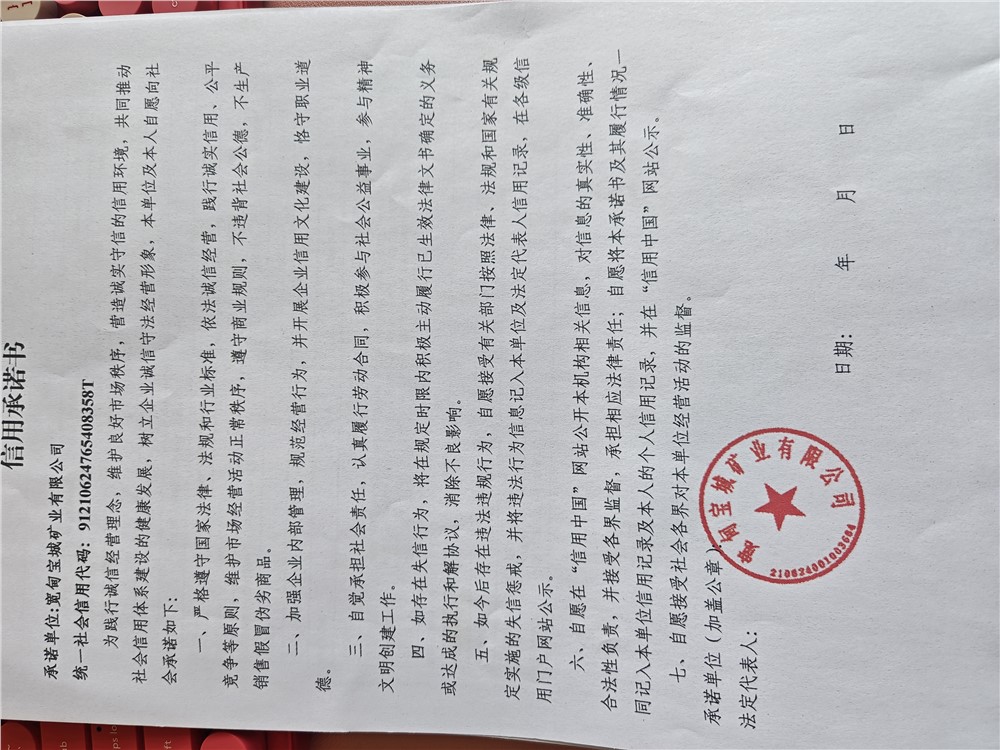 信用承诺书
承诺单位:宽甸宝城矿业有限公司
统一社会信用代码：91210624765408358T
为践行诚信经营理念，维护良好市场秩序，营造诚实守信的信用环境，共同推动
社会信用体系建设的健康发展，树立企业诚信守法经营形象，本单位及本人自愿向社
会承诺如下：
一、严格遵守国家法律、法规和行业标准，依法诚信经营，践行诚实信用、公平
竞争等原则，维护市场经营活动正常秩序，遵守商业规则，不违背社会公德，不生产
销售假冒伪劣商品。
二、加强企业内部管理，规范经营行为，并开展企业信用文化建设，恪守职业道
德。
三、自觉承担社会责任，认真履行劳动合同，积极参与社会公益事业，参与精神
文明创建工作。
四、如存在失信行为，将在规定时限内积极主动履行已生效法律文书确定的义务
或达成的执行和解协议，消除不良影响。
五、如今后存在违法违规行为，自愿接受有关部门按照法律、法规和国家有关规
定实施的失信惩戒，并将违法行为信息记入本单位及法定代表人信用记录，在各级信
用门户网站公示。
六、自愿在“信用中国”网站公开本机构相关信息，对信息的真实性、准确性、
合法性负责，并接受各界监督，承担相应法律责任；自愿将本承诺书及其履行情况一
同记入本单位信用记录及本人的个人信用记录，并在“信用中国”网站公示。
七、自愿接受社会各界对本单位经营活动的监督。
承诺单位（加盖公章）：
法定代表人：
日期： 年 月 日
宽甸宝城矿业有限公司
210624001003684